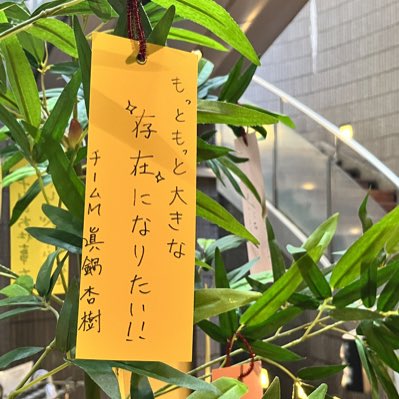 もっともっと大きな
存在になりたい!!
チームM 眞鍋杏樹